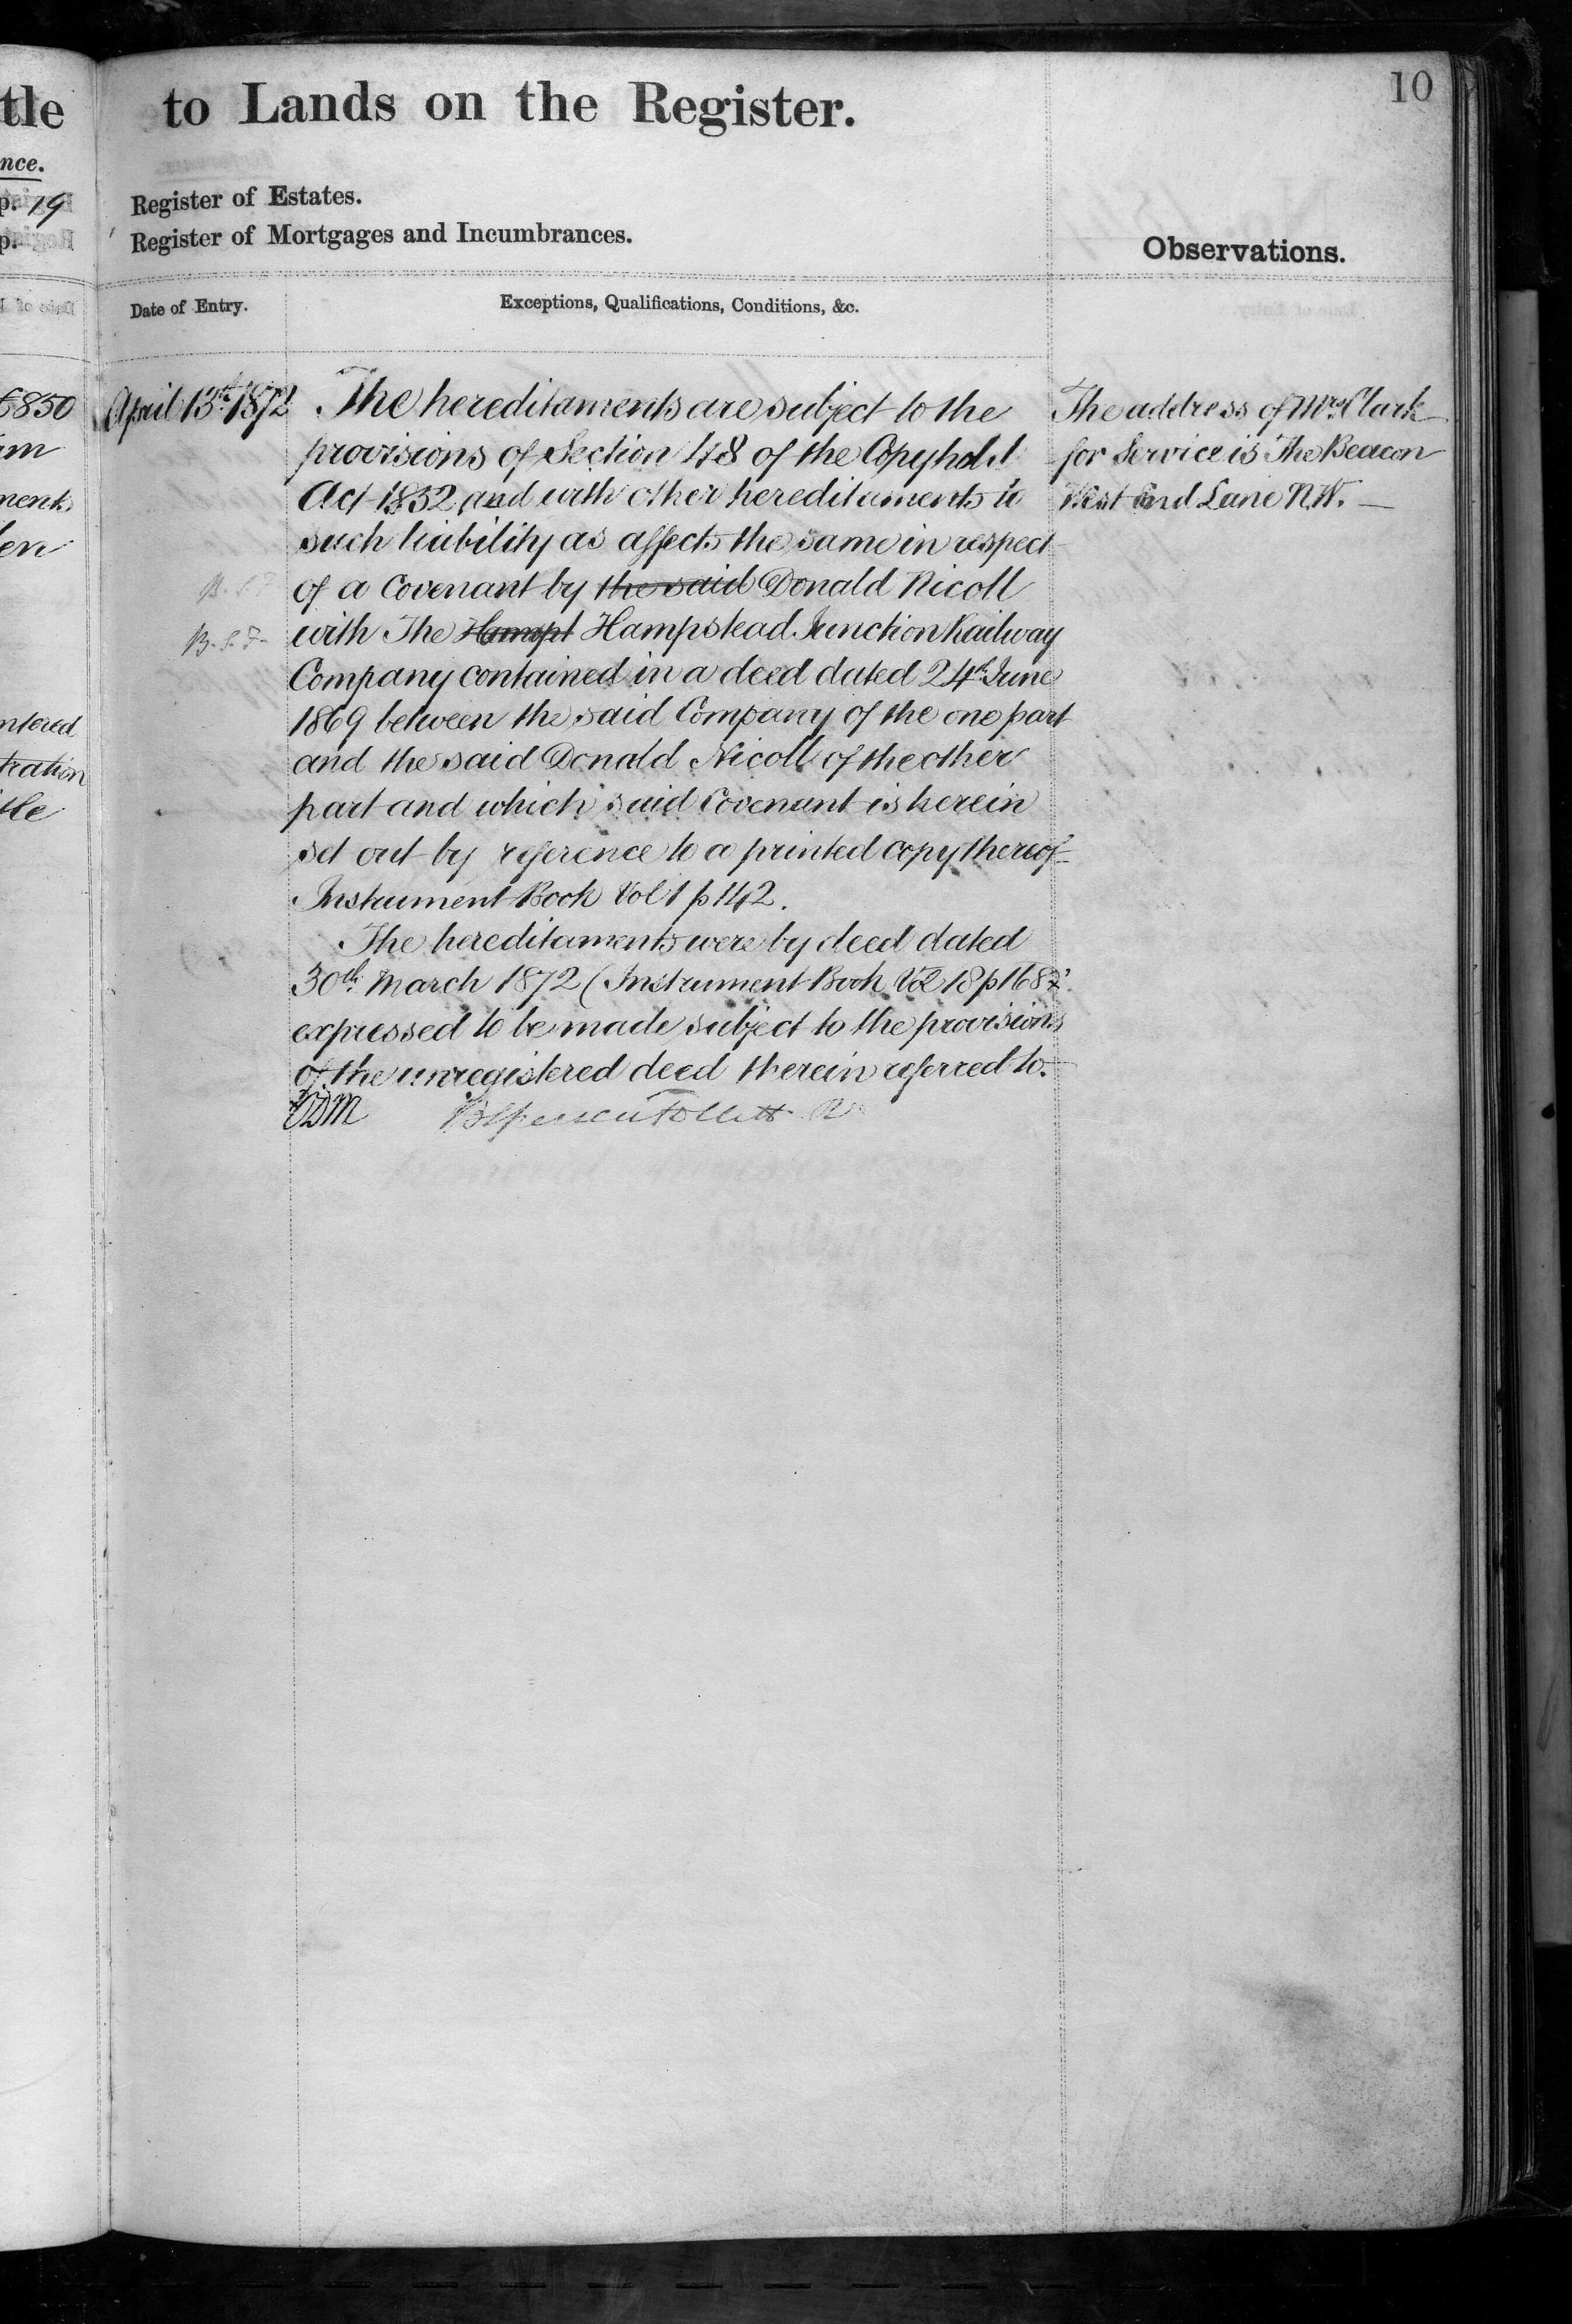 10
tle to Lands on the Register.
nce.
p. 19 Register of Estates.
p. Register of Mortgages and Incumbrances.
Observations.
Date of Entry.
Exceptions, Qualifications, Conditions, &c.
£850
April 13th 1872
The hereditaments are subject to the
provisions of Section 48 of the Copyhold
Act 1852 and with other hereditaments to
such liability as affects the same in respect
of a Covenant by the said Donald Nicoll
B.S.F. with The Hampt Hampstead Junction Railway
Company contained in a deed dated 24th June
1869 between the said Company of the one part
and the said Donald Nicoll of the other
part and which said Covenant is herein
set out by reference to a printed copy thereof
Instrument Book Vol 1 p 142.
The hereditaments were by deed dated
30th March 1872 (Instrument Book Vol 18 p 168)
expressed to be made subject to the provisions
of the unregistered deed therein referred to.
The address of Mrs Clark
for Service is The Beacon
West End Lane N.W.
ntered
tration